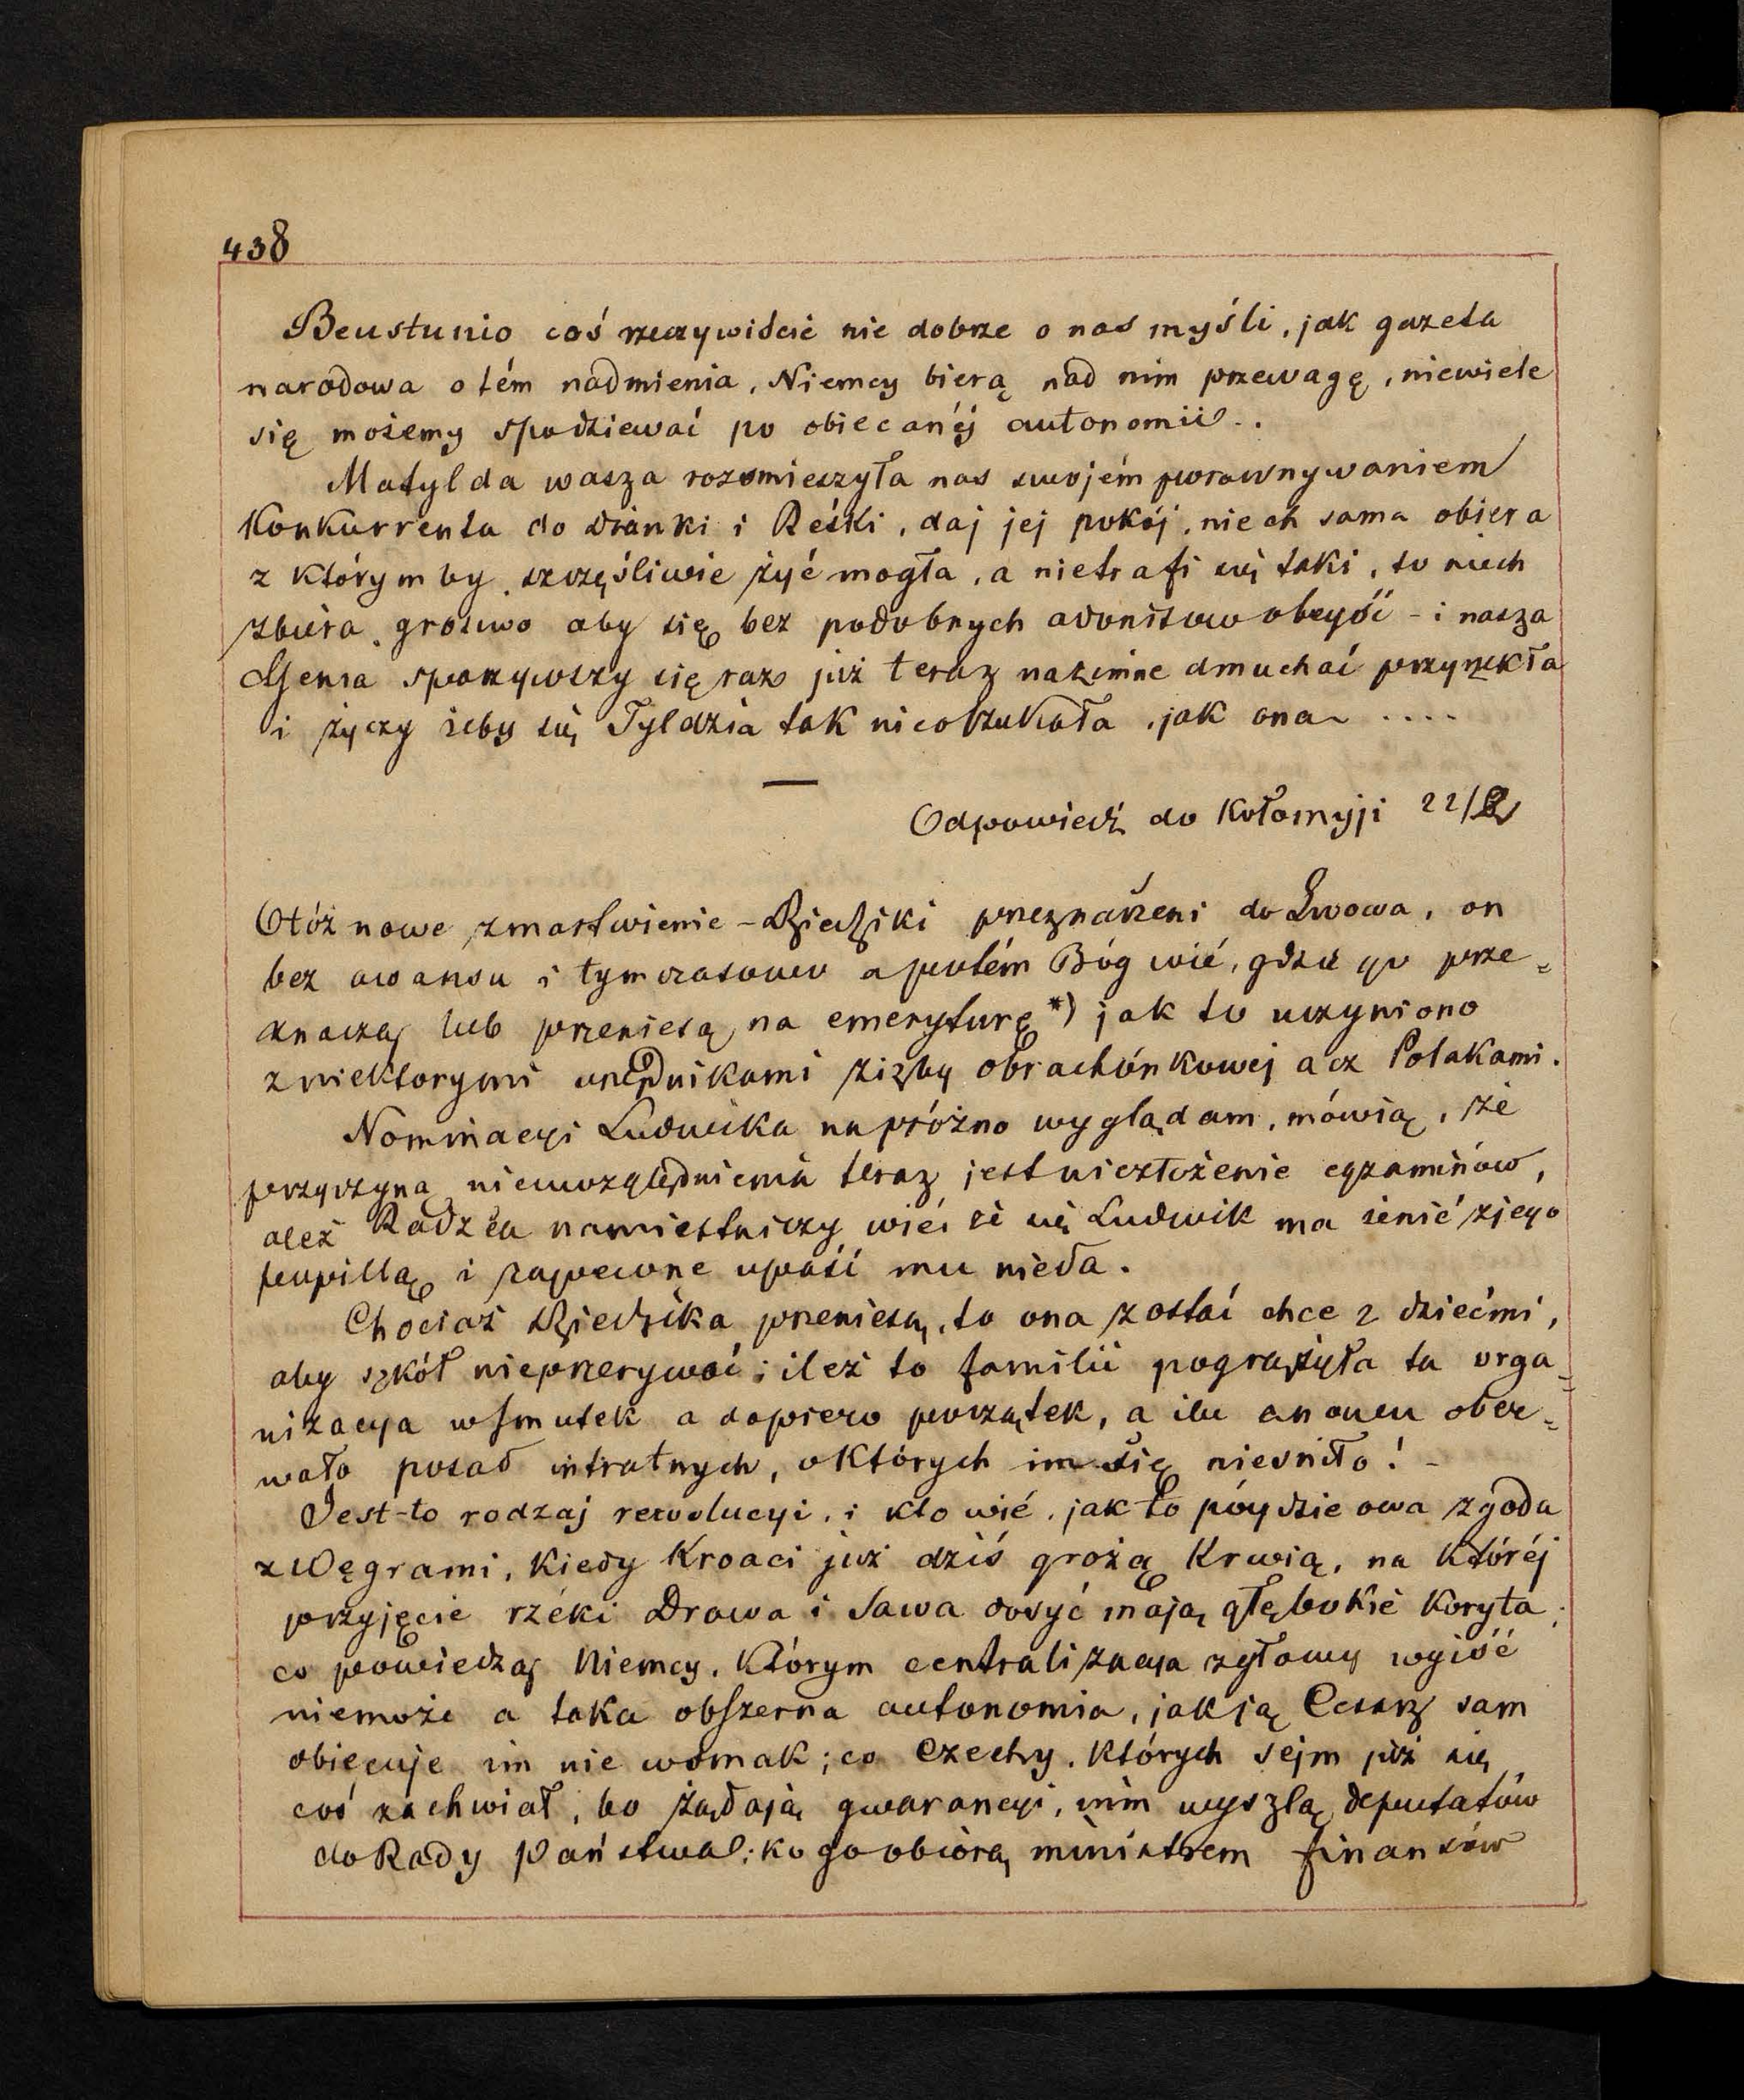 438
Beustunio coś rzeczywiście nie dobrze o nas myśli, jak gazeta
narodowa o tém nadmienia, Niemcy bierą nad nim przewagę, niewiele
się możemy spodziewać po obiecanéj autonomii..
Matylda wasza rozśmieszyła nas swojém porównywaniem
Konkurrenta do i Reśki, daj jej pokój, niech sama obiera
z którym by szczęśliwie żyć mogła, a nietrafi się taki, to niech
zbiéra grosiwo aby się bez podobnych adonisów obeyść - i nasza
Genia sparzywszy się raz już teraz nazimne dmuchać przyrzekła
i życzy żeby się Tyldzia tak nieoszukała, jak ona ....
—
Odpowiedź do Kołomyji 22/2
Otóż nowe zmartwienie - Dziedziki przeznaczeni do Lwowa, on
bez awansu i tymczasowo a potém Bóg wié, gdzie go prze=
znaczą lub przeniesą na emeryturę *) jak to uczyniono
zniektorymi urzędnikami zizby obrachónkowej acz Polakami.
Nominacyi Ludwika napróżno wyglądam, mówią, że
przyczyną nieuwzględnienia teraz jest niezłożenie egzaminów,
ależ Radzca namiestniczy wié, że się Ludwik ma żenić zjego
pupillą i zapewne upaść mu nieda.
Chociaż Dziedzika przeniesą, to ona zostać chce z dziećmi,
aby szkół nieprzerywać; ileż to familii pogrążyła ta orga=
nizacya wsmutek a dopiero początek, a ilu znowu ober=
wało posad intratnych, októrych im się nieśniło! -
Jest-to rodzaj rewolucyi, i kto wié, jak to póydzie owa zgoda
z Węgrami, kiedy Kroaci już dziś grożą krwią, na któréj
przyjęcie rzéki Drawa i Sawa dosyć mają głębokie koryta;
co powiedzą Niemcy, którym centralizacya zgłowy wyiść
niemoże a taka obszerna autonomia, jak ją Cesarz sam
obiecuje im nie wsmak; co Czechy, których sejm już się
coś zachwiał, bo żądają gwarancyi, nim wyszlą deputatów
do Rady Państwa; kogo obiorą ministrem finansów